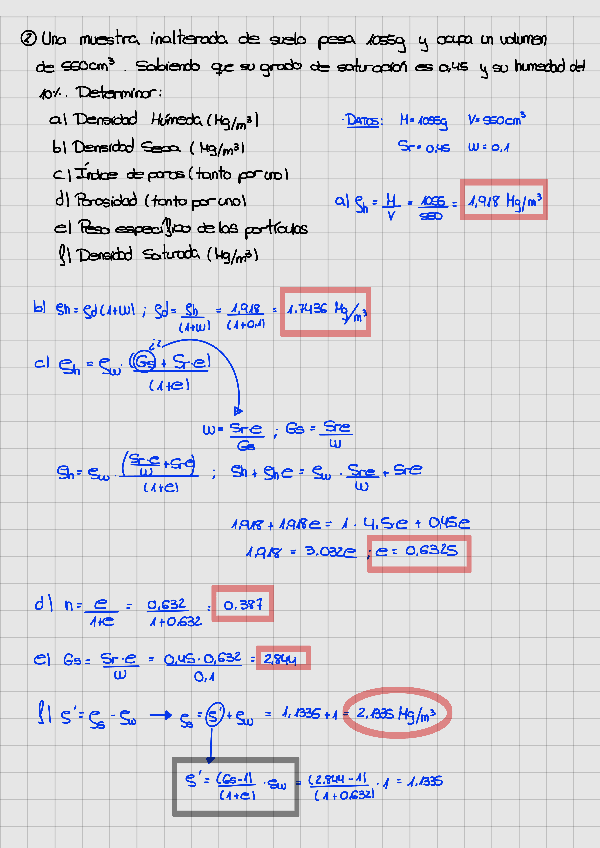 ② Una muestra inalterada de suelo pesa 1055g y ocupa un volumen
de 550cm³. Sabiendo que su grado de saturación es 0,45 y su humedad del
10%. Determinar:
a) Densidad Húmeda (Mg/m³)
b) Densidad Seca (Mg/m³)
c) Índice de poros (tanto por uno)
d) Porosidad (tanto por uno)
e) Peso específico de las partículas
f) Densidad Saturada (Mg/m³)
· DATOS: M = 1055g V = 550cm³
Sr = 0,45 w = 0.1
a) ρh = M/V = 1055/550 = 1,918 Mg/m³
b) ρh = ρd (1+w) ; ρd = ρh/(1+w) = 1,918/(1+0,1) = 1.7436 Mg/m³
c) ρh = ρw · (Gs + Sr·e)/(1+e)
¿?
w = Sr·e/Gs ; Gs = Sr·e/w
ρh = ρw · (Sr·e/w + Sr·e)/(1+e) ; ρh + ρh e = ρw · Sr·e/w + Sr·e
1,918 + 1,918e = 1 · 4,5e + 0,45e
1,918 = 3.032e ; e = 0,6325
d) n = e/(1+e) = 0,632/(1+0,632) = 0,387
e) Gs = Sr·e/w = 0,45·0,632/0,1 = 2,844
f) ρ' = ρs - ρw → ρs = ρ' + ρw = 1,1335 + 1 = 2,1335 Mg/m³
ρ' = (Gs-1)/(1+e) · ρw = (2.844-1)/(1+0,632) · 1 = 1,1335